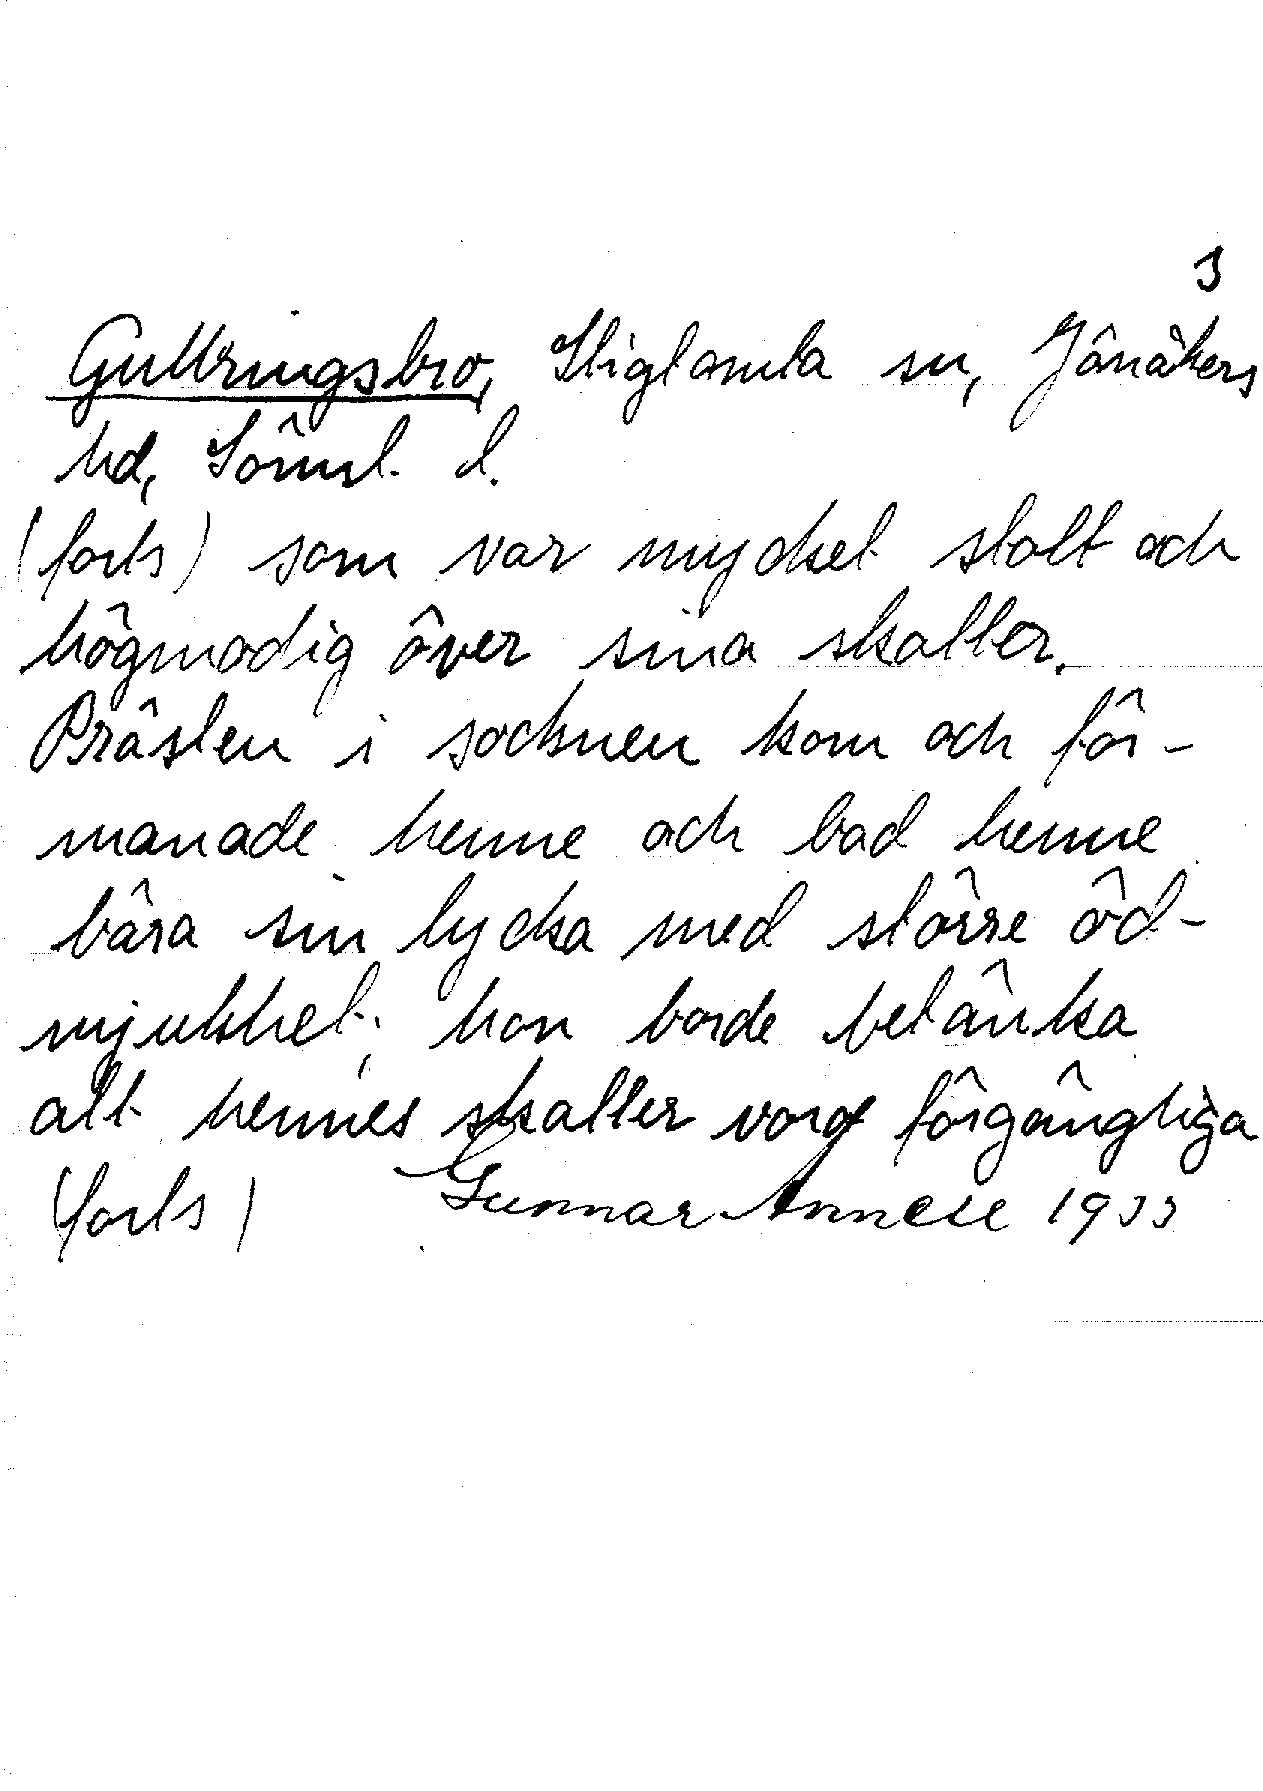 3
Gullringsbro, Stigtomta sn, Jönåkers
hd, Sörml. l.
(forts) som var mycket stolt och
högmodig över sina skatter.
Prästen i socknen kom och för-
manade henne och bad henne
bära sin lycka med större öd-
mjukhet; hon borde betänka
att hennes skatter vore förgängliga
(forts) Gunnar Annell 1933